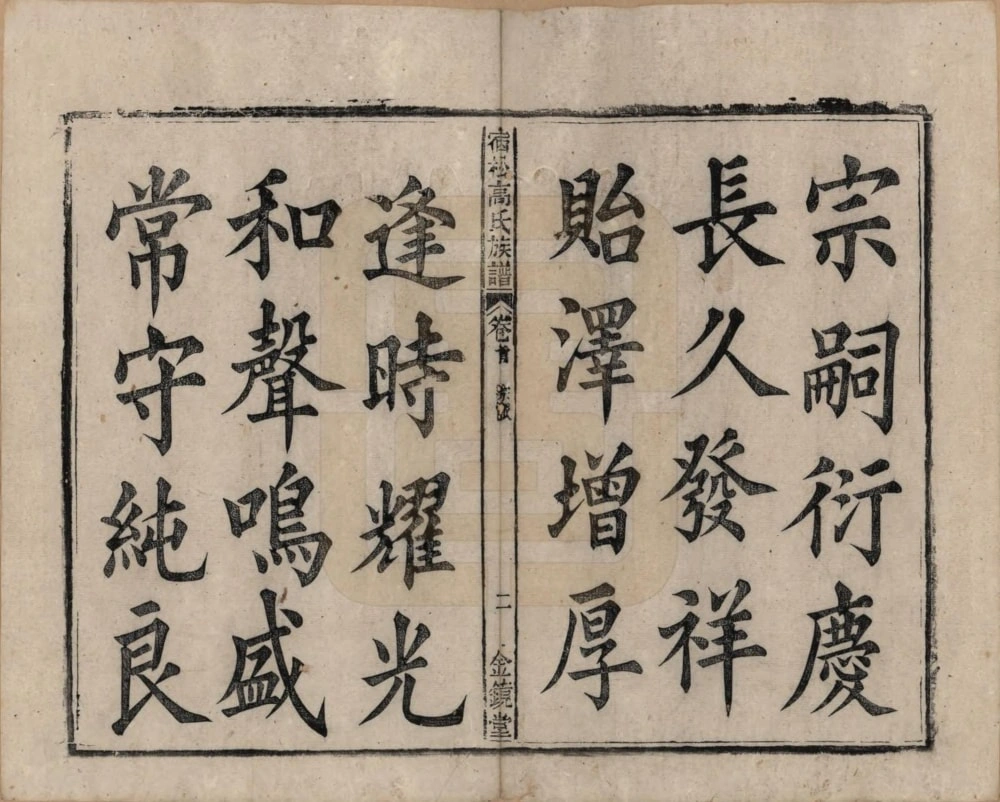 宗嗣衍慶
長久發祥
貽澤增厚
宿松高氏族譜
卷首
派
二
金鏡堂
逢時耀光
和聲鳴盛
常守純良